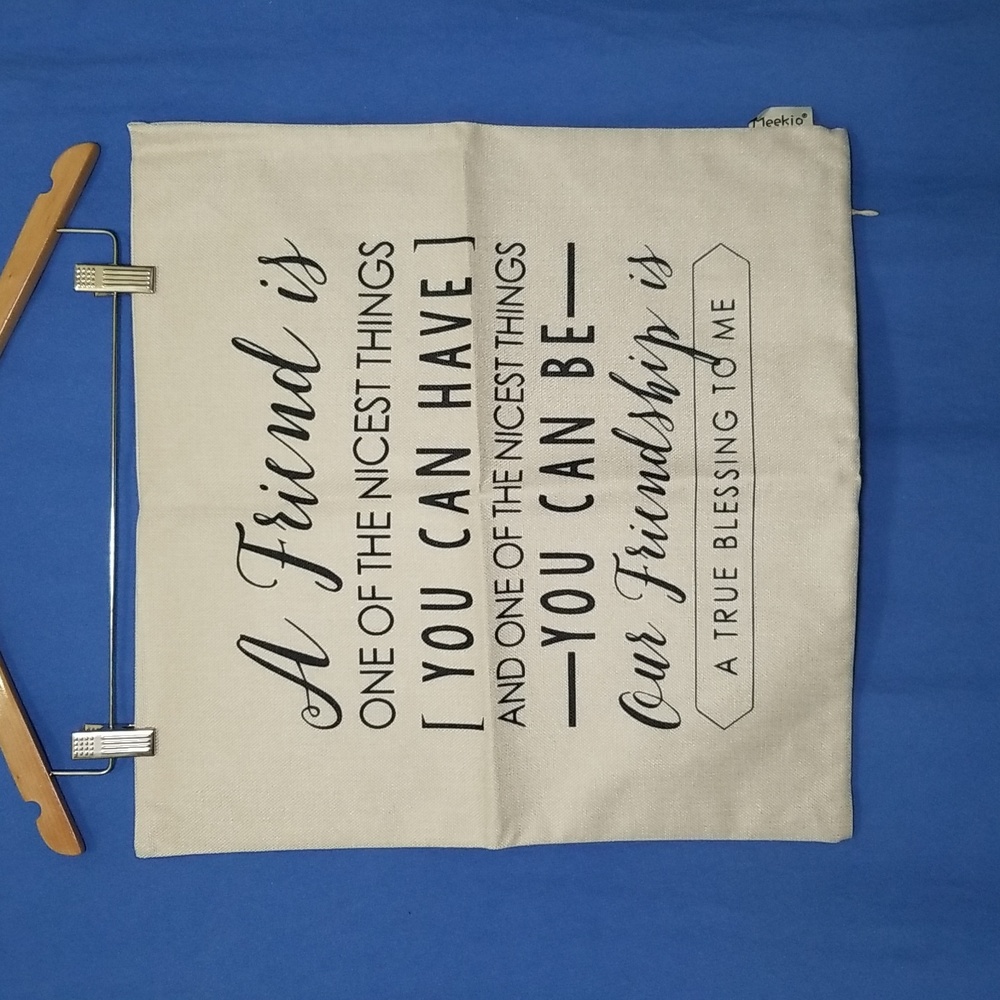 A Friend is
ONE OF THE NICEST THINGS
[ YOU CAN HAVE ]
AND ONE OF THE NICEST THINGS
—YOU CAN BE—
Our Friendship is
A TRUE BLESSING TO ME
Meekio®